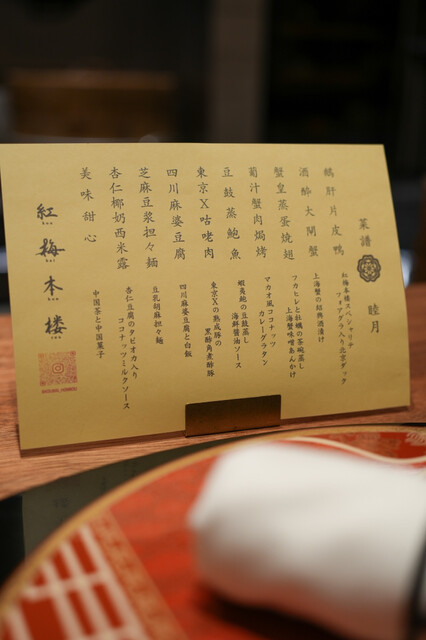 菜譜 睦月
鵝肝片皮鴨
紅梅本楼スペシャリテ
フォアグラ入り北京ダック
酒酔大閘蟹
上海蟹の紹興酒漬け
蟹皇蒸蛋焼翅
フカヒレと牡蠣の茶碗蒸し
上海蟹味噌あんかけ
葡汁蟹肉焗烤
マカオ風ココナッツ
カレーグラタン
豆鼓蒸鮑魚
蝦夷鮑の豆鼓蒸し
海鮮醤油ソース
東京X咕咾肉
東京Xの熟成豚の
黒酢角煮酢豚
四川麻婆豆腐
四川麻婆豆腐と白飯
芝麻豆漿担々麺
豆乳胡麻担々麺
杏仁椰奶西米露
杏仁豆腐のタピオカ入り
ココナッツミルクソース
美味甜心
中国茶と中国菓子
紅梅本楼